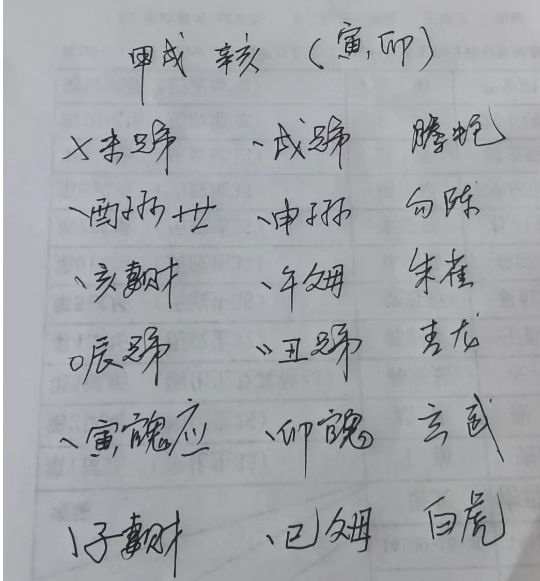 甲戌 辛亥 (寅,卯)
X未兄弟 、戌兄弟 腾蛇
、酉子孙 世 、申子孙 勾陈
、亥妻财 、午父母 朱雀
O辰兄弟 、丑兄弟 青龙
、寅官鬼应 、卯官鬼 玄武
、子妻财 、巳父母 白虎